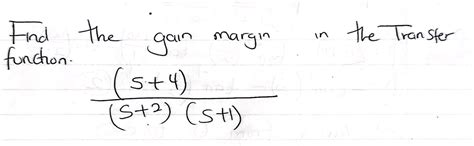 Find the gain margin in the Transfer
function.
(s+4)
(s+2) (s+1)